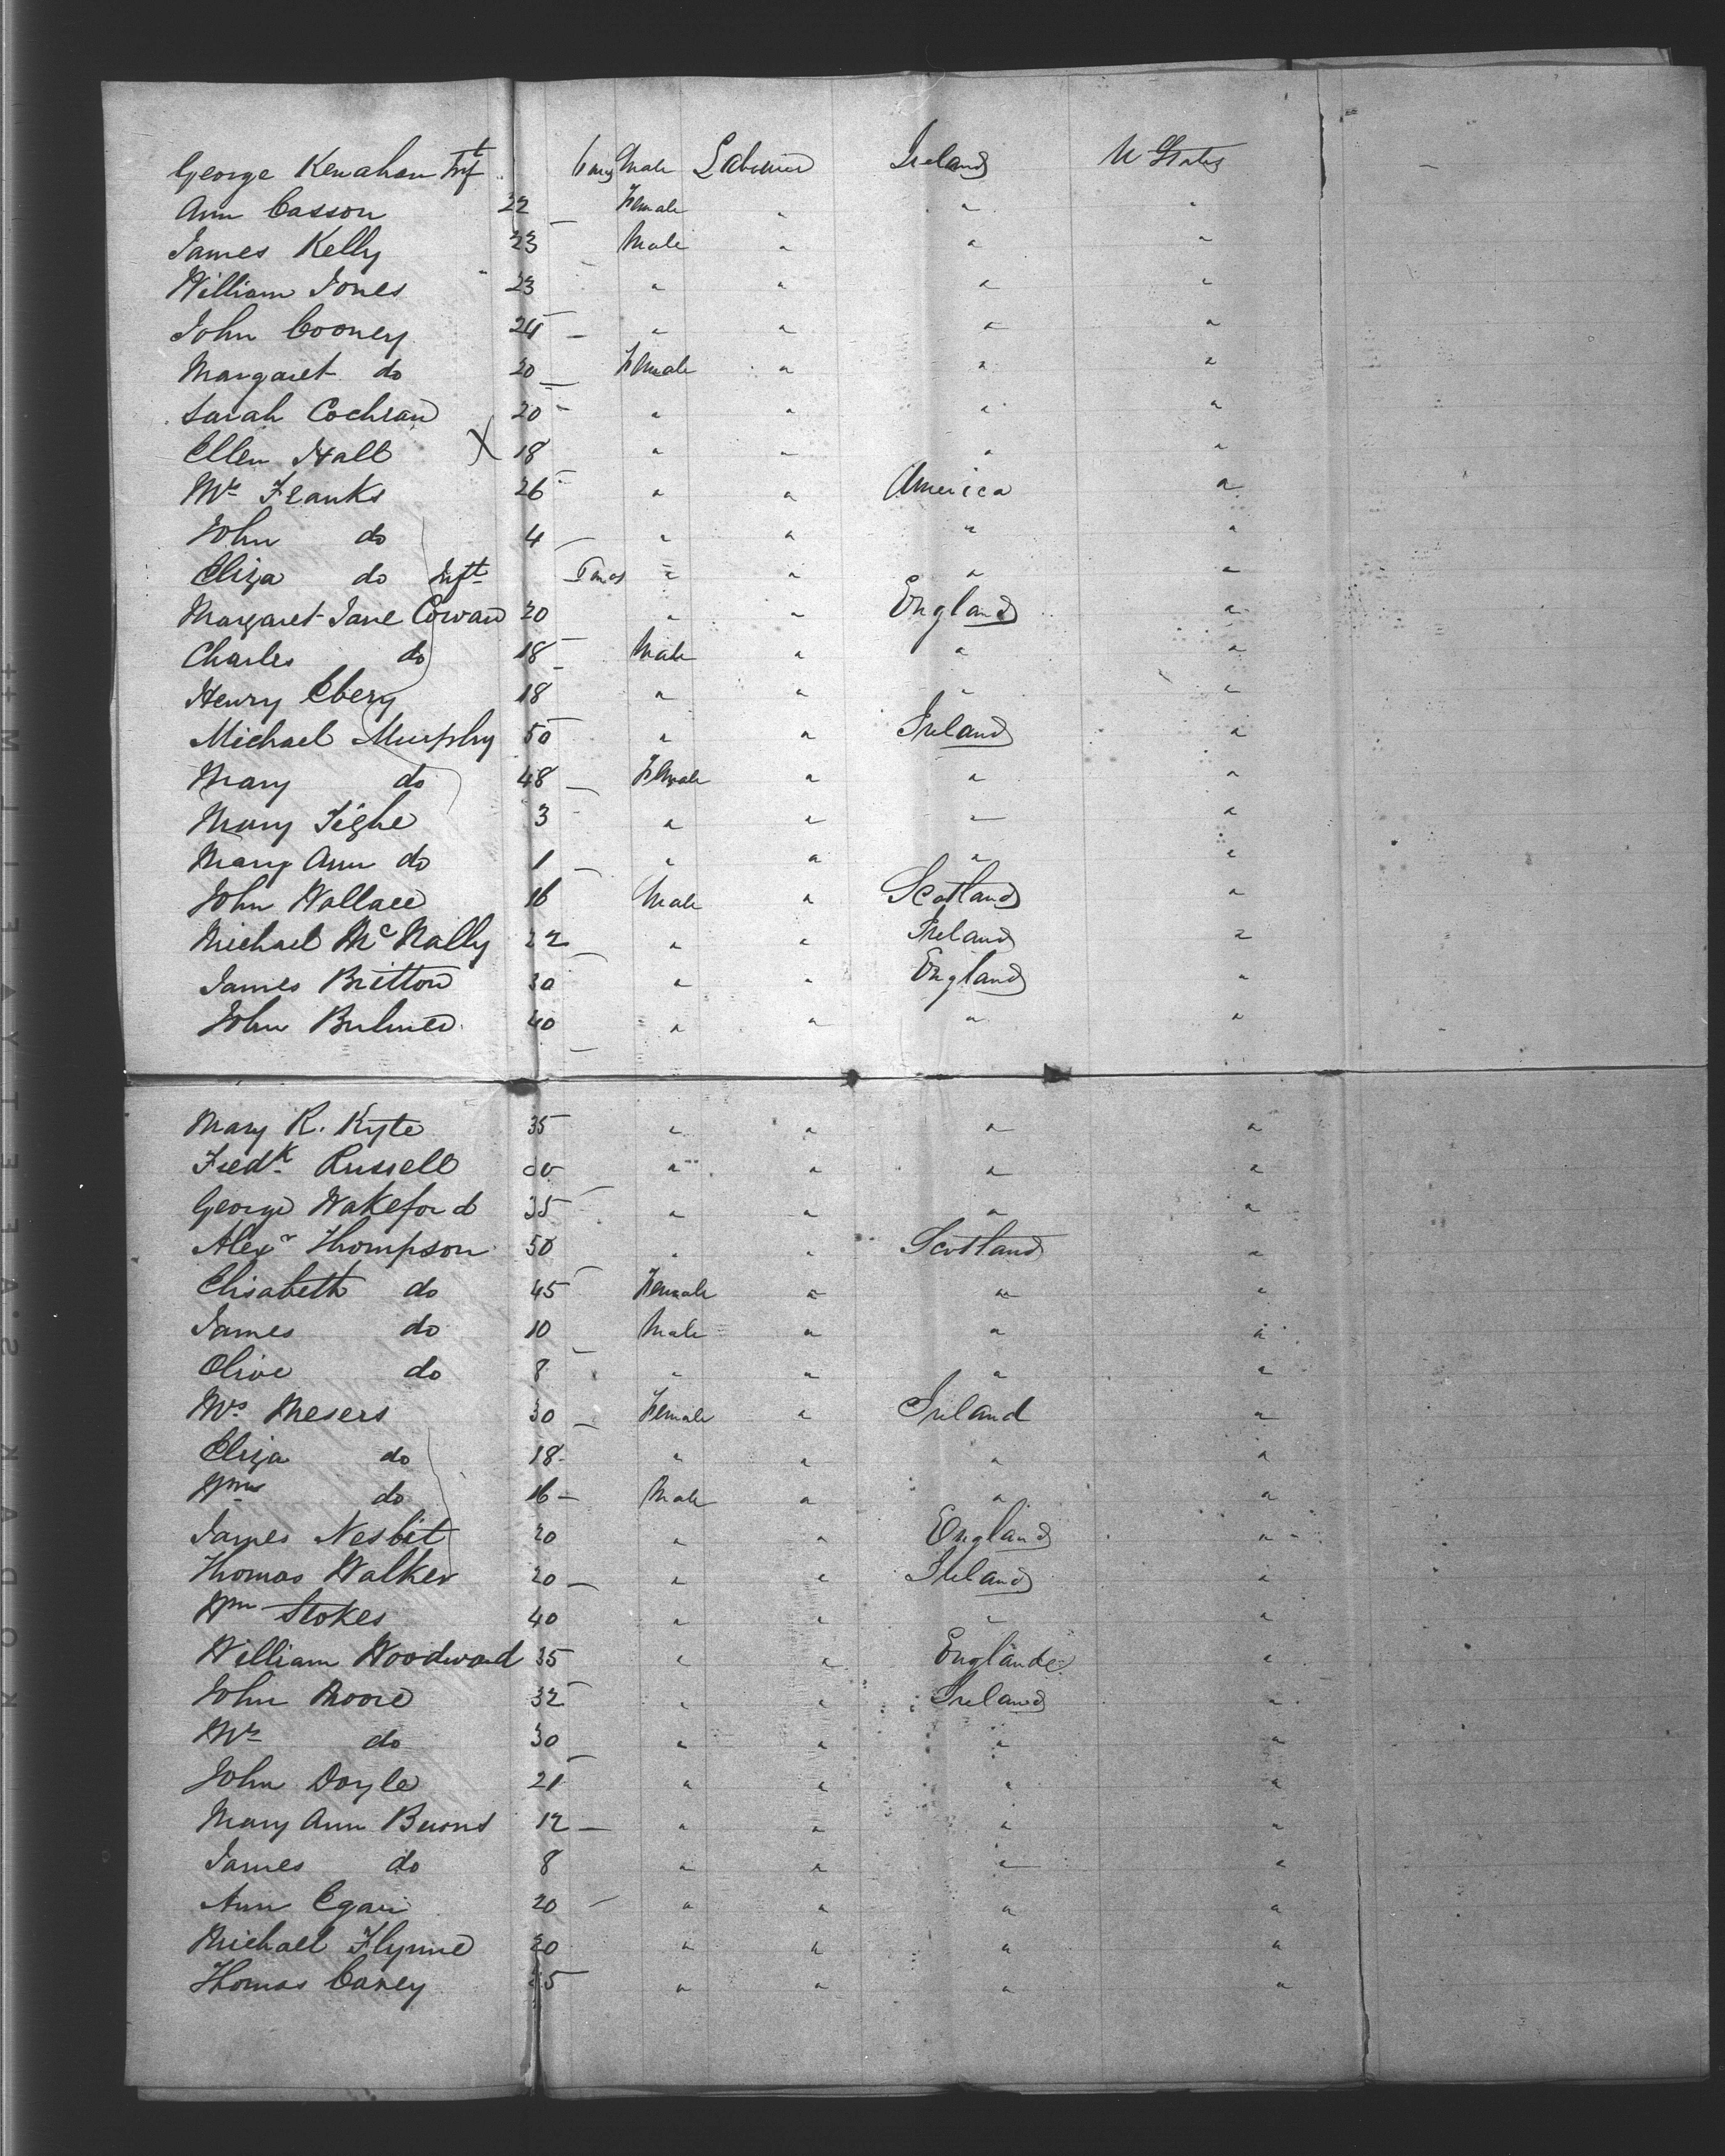 George Kenahan Inft 6 mos Male Labourer Ireland U States
Ann Casson 22 Female " " "
James Kelly 23 Male " " "
William Jones 23 " " " "
John Cooney 24 " " " "
Margaret do 20 Female " " "
Sarah Cochran 20 " " " "
Ellen Hall X 18 " " " "
Mrs Franks 26 " " America "
John do 4 " " " "
Eliza do Inft mos " " " "
Margaret Jane Cowan 20 " " England "
Charles do 18 Male " " "
Henry Ebery 18 " " " "
Michael Murphy 50 " " Ireland "
Mary do 48 Female " " "
Mary Tighe 3 " " " "
Mary Ann do 1 " " " "
John Wallace 16 Male " Scotland "
Michael McNally 22 " " Ireland "
James Britton 30 " " England "
John Bulmer 40 " " " "
Mary R. Kyte 35 " " " "
Fredk Russell " " " "
George Wakeford 35 " " " "
Alexr Thompson 50 " " Scotland "
Elisabeth do 45 Female " " "
James do 10 Male " " "
Olive do 8 " " " "
Mrs Mesers 30 Female " Ireland "
Eliza do 18 " " " "
Wm do 16 Male " " "
James Nesbit 20 " " England "
Thomas Walker 20 " " Ireland "
Wm Stokes 40 " " " "
William Woodward 35 " " England "
John Moore 32 " " Ireland "
Mrs do 30 " " " "
John Doyle 21 " " " "
Mary Ann Burns 12 " " " "
James do 8 " " " "
Ann Egan 20 " " " "
Michael Flynne 20 " " " "
Thomas Carey 25 " " " "